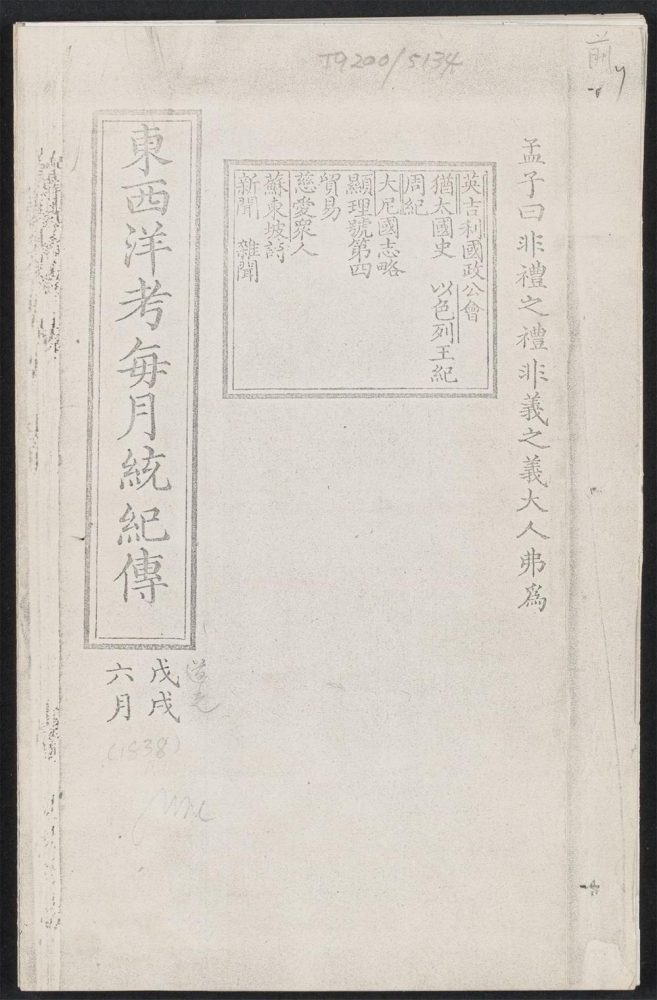 T9200/5134
前
孟子曰非禮之禮非義之義大人弗爲
英吉利國政公會
猶太國史 以色列王紀
周紀
大尼國志略
顯理號第四
貿易
慈愛眾人
蘇東坡詩
新聞 雜聞
東西洋考每月統紀傳
道光
戊戌
六月
(1838)